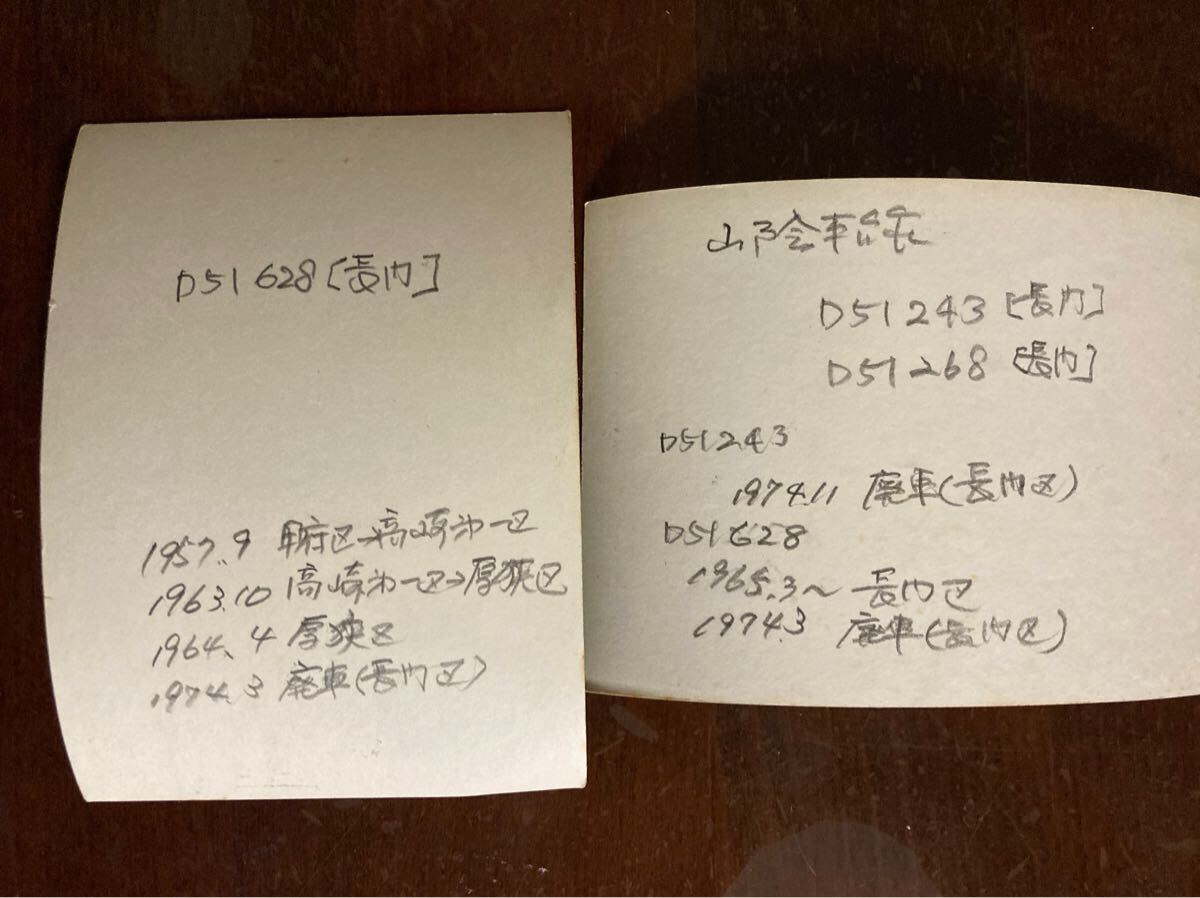 D51 628 [長門]
1957.9 甲府区→高崎第一区
1963.10 高崎第一区→厚狭区
1964.4 厚狭区
1974.3 廃車(長門区)
山陰本線
D51 243 [長門]
D51 268 [長門]
D51243
1974.11 廃車(長門区)
D51628
1965.3〜 長門区
1974.3 廃車(長門区)